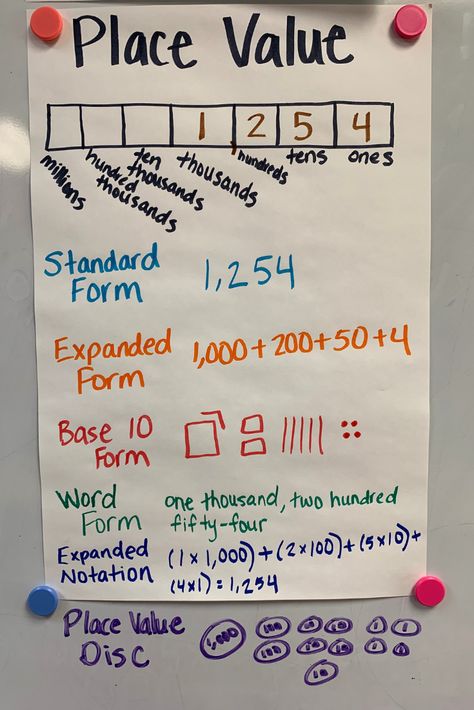 Place Value
1 2 5 4
millions hundred thousands ten thousands thousands hundreds tens ones
Standard Form 1,254
Expanded Form 1,000+200+50+4
Base 10 Form
Word Form one thousand, two hundred
fifty-four
Expanded Notation (1x1,000)+(2x100)+(5x10)+
(4x1)=1,254
Place Value Disc 1,000 100 10 10 1 1
100 10 10 1
10